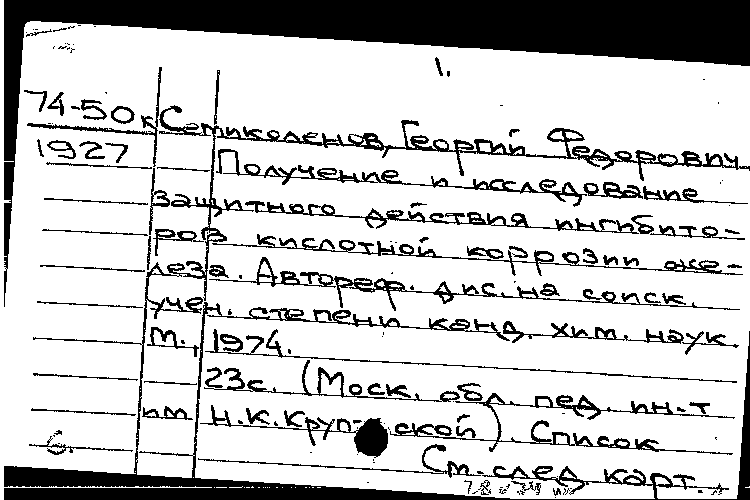 1.
74-50к Семиколенов, Георгий Федорович
1927 Получение и исследование
защитного действия ингибито-
ров кислотной коррозии же-
леза. Автореф. дис. на соиск.
учен. степени канд. хим. наук.
М., 1974.
23с. (Моск. обл. пед. ин-т
им Н.К.Крупской). Список
6. См. след карт.